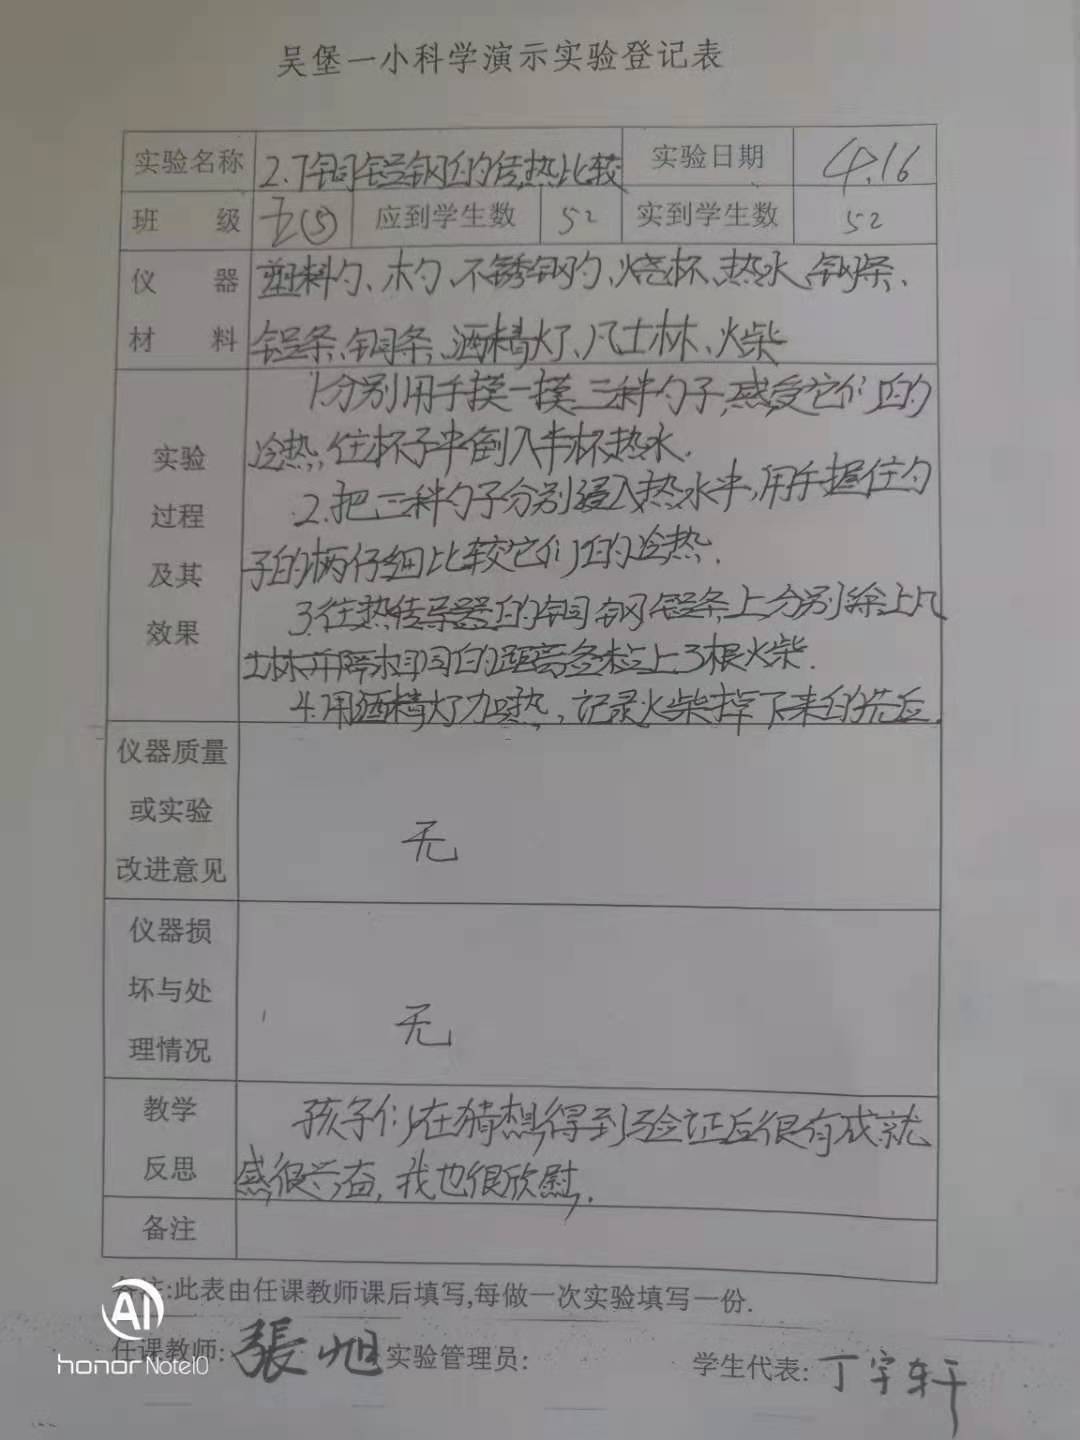 吴堡一小科学演示实验登记表
实验名称 2.7铜铝钢的传热比较 实验日期 4.16
班 级 五(5) 应到学生数 52 实到学生数 52
仪 器 塑料勺、木勺、不锈钢勺、烧杯、热水、钢条、
材 料 铝条、铜条、酒精灯、凡士林、火柴
1.分别用手摸一摸三种勺子,感受它们的
实验 冷热,往杯子中倒入半杯热水.
过程 2.把三种勺子分别浸入热水中,用手握住勺
及其 子的柄仔细比较它们的冷热.
效果 3.往热传导器的铜钢铝条上分别涂上凡
士林并隔相同的距离各粒上3根火柴.
4.用酒精灯加热,记录火柴掉下来的先后.
仪器质量
或实验 无
改进意见
仪器损
坏与处
理情况 无
教学 孩子们在猜想得到验证后很有成就
反思 感很兴奋,我也很欣慰.
备注
备注:此表由任课教师课后填写,每做一次实验填写一份.
任课教师: 張旭 实验管理员: 学生代表: 丁宇轩
AI
honor Note10